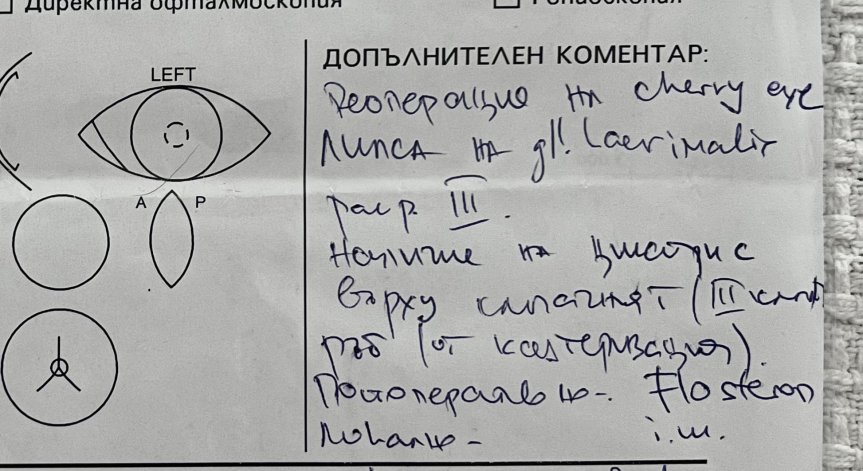 Директна офталмоскопия
LEFT
A P
ДОПЪЛНИТЕЛЕН КОМЕНТАР:
Реоперация на cherry eye
Липса на gl. Lacrimalis
III.
Наличие на
върху клепачният (III
ръб (от каутеризация).
Постоперативно - Flosteron
локално - i.m.